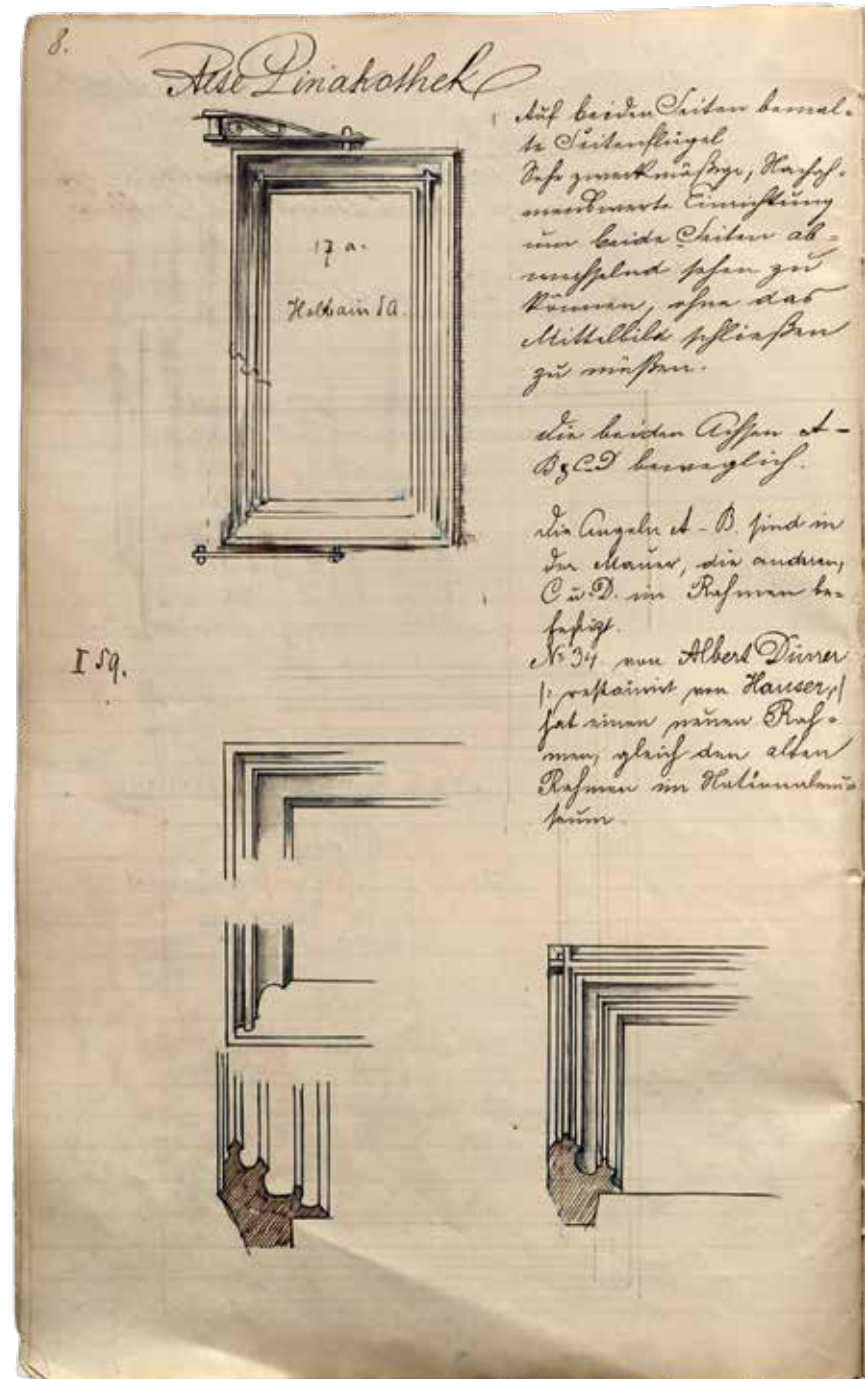 8.
Alte Pinakothek
Auf beiden Seiten bemal-
te Seitenflügel
Sehr zweckmäßige, Nachah-
menswerte Einrichtung
um beide Seiten ab-
wechselnd sehen zu
können, ohne das
Mittelbild schließen
zu müßen.
die beiden Achsen A-
B & C.D beweglich.
die Angeln A-B. sind in
der Mauer, die anderen,
C u. D. im Rahmen be-
festigt.
No 34 von Albert Dürer
|: restaurirt von Hauser, :|
hat einen neuen Rah-
men, gleich den alten
Rahmen im Nationalmu-
seum.
17 a.
Holbain d A.
I